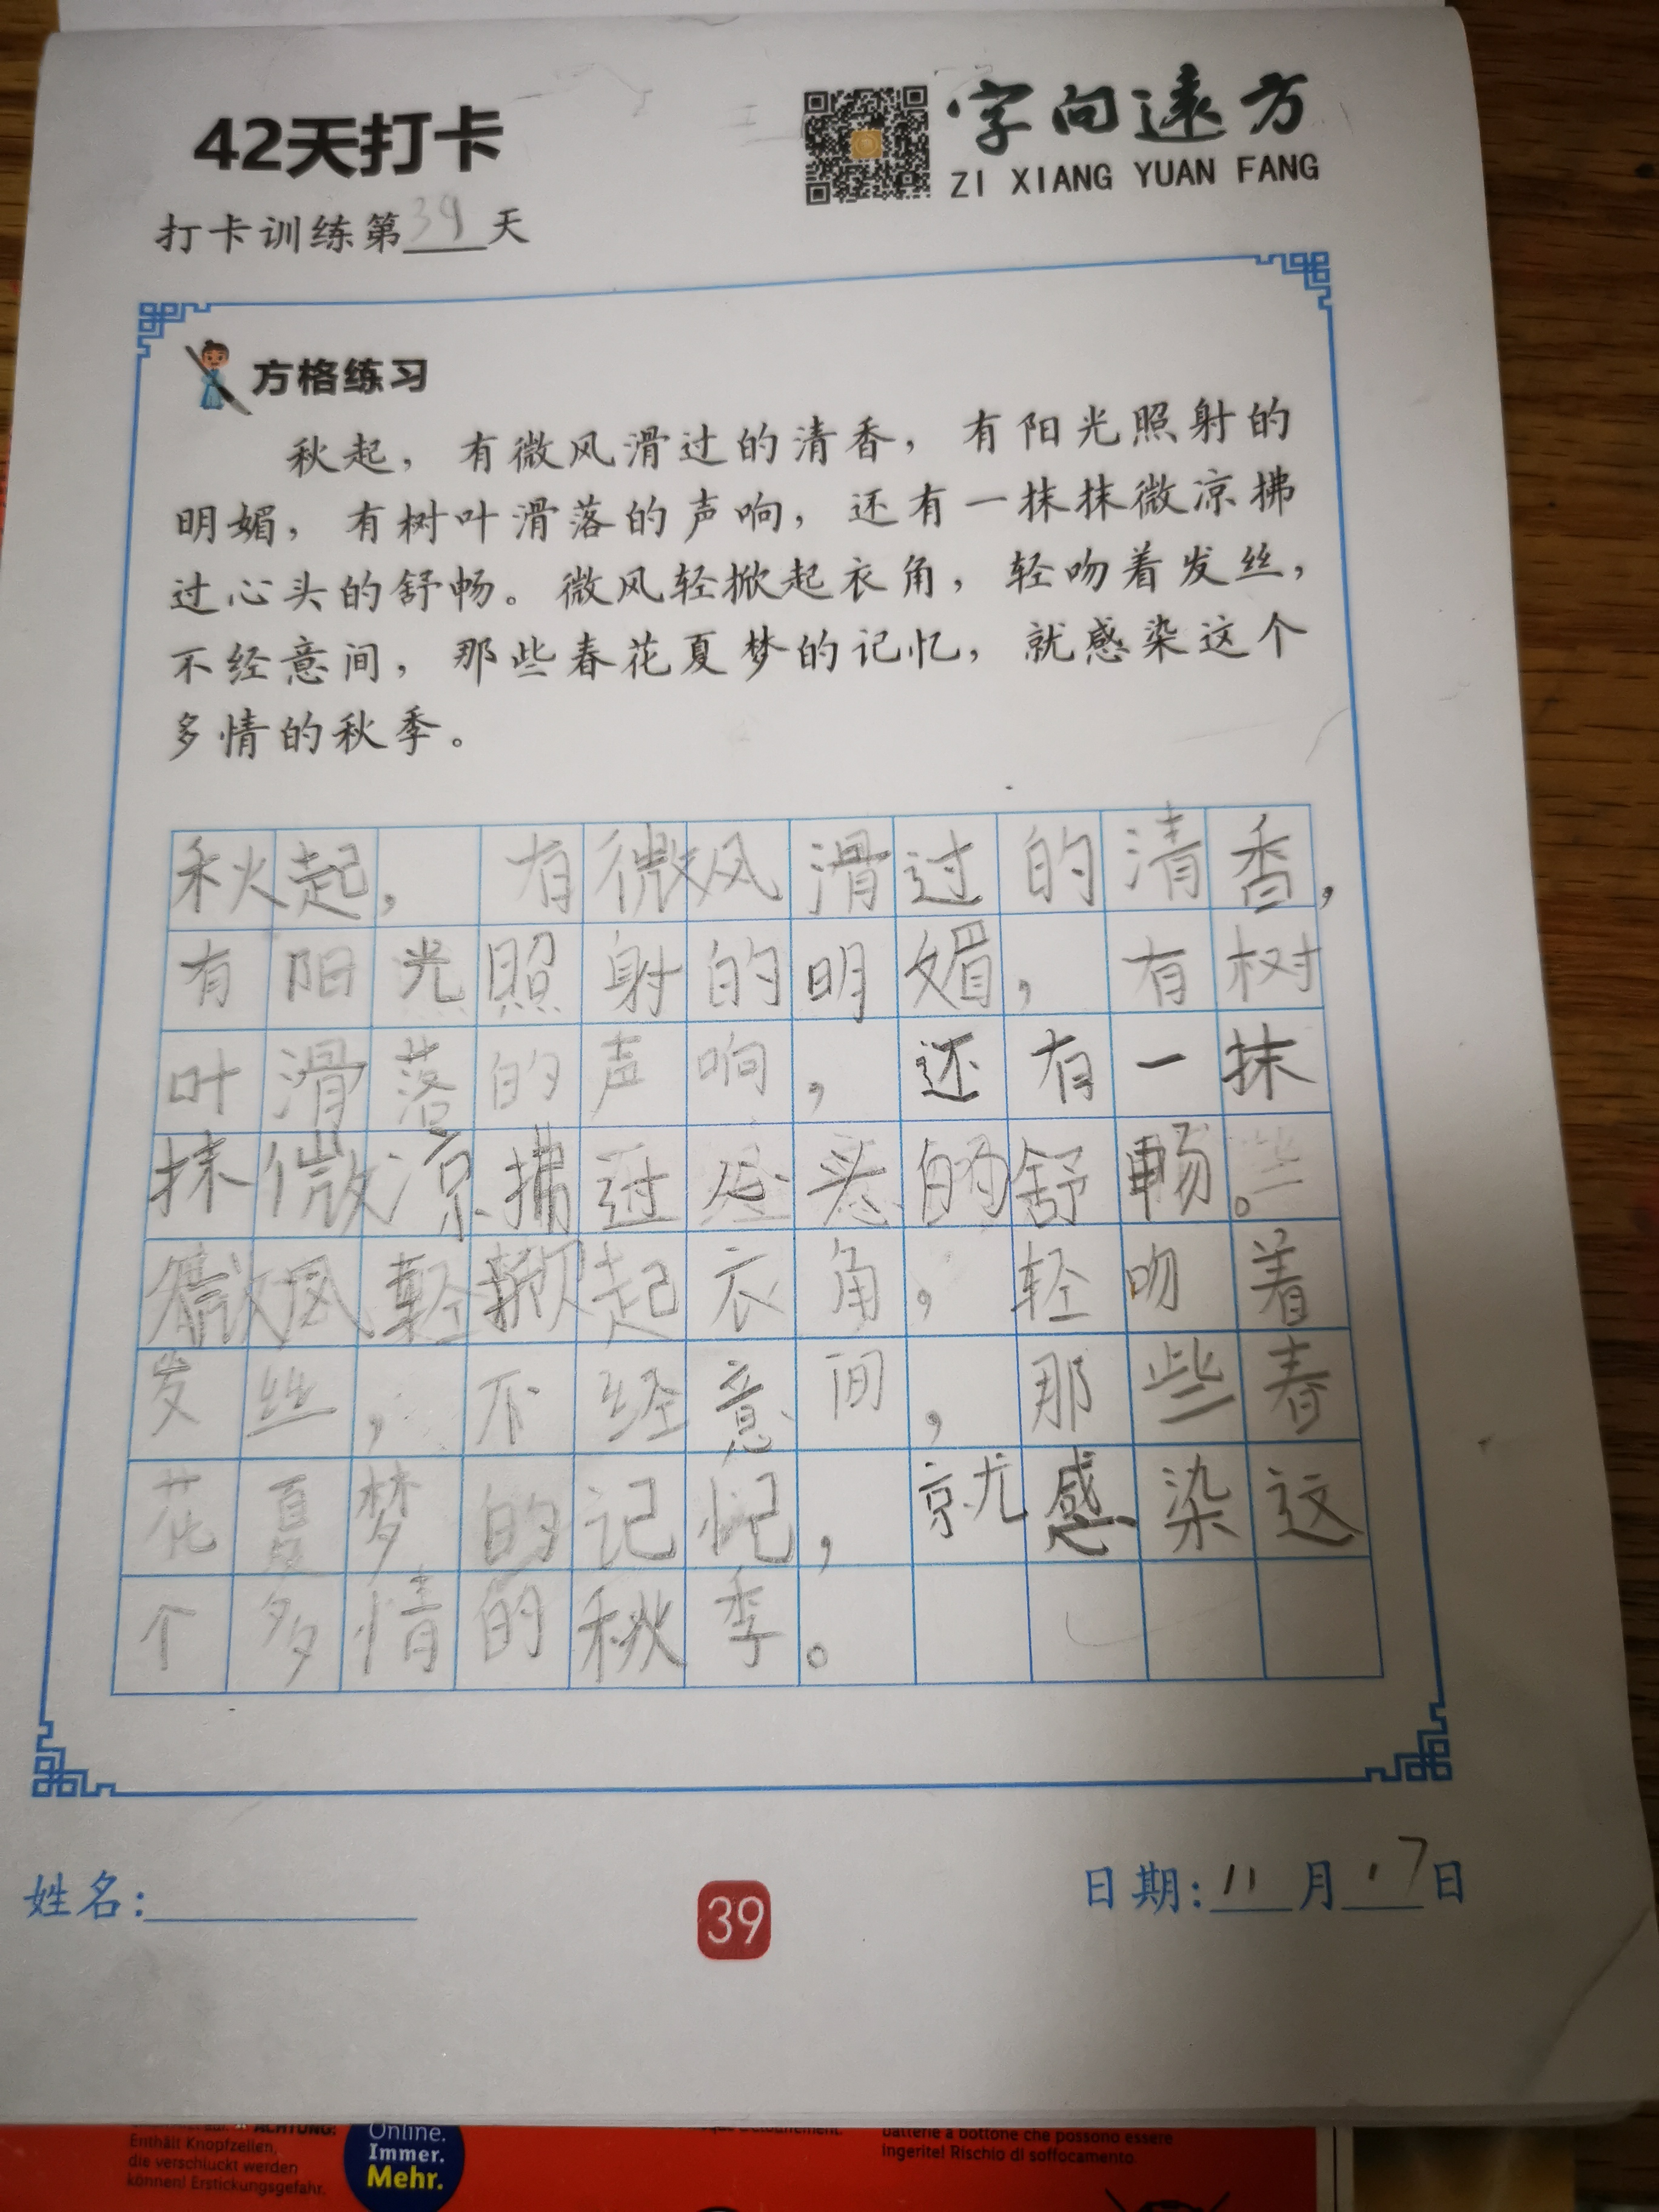 42天打卡
字向远方
ZI XIANG YUAN FANG
打卡训练第39天
方格练习
秋起，有微风滑过的清香，有阳光照射的
明媚，有树叶滑落的声响，还有一抹抹微凉拂
过心头的舒畅。微风轻掀起衣角，轻吻着发丝，
不经意间，那些春花夏梦的记忆，就感染这个
多情的秋季。
秋起，有微风滑过的清香，
有阳光照射的明媚，有树
叶滑落的声响，还有一抹
抹微凉拂过心头的舒畅。
微风轻掀起衣角，轻吻着
发丝，不经意间，那些春
花夏梦的记忆，就感染这
个多情的秋季。
姓名：
39
日期：11月17日
ACHTUNG:
Enthält Knopfzellen,
die verschluckt werden
können! Erstickungsgefahr.
Online.
Immer.
Mehr.
batterie a bottone che possono essere
ingerite! Rischio di soffocamento.